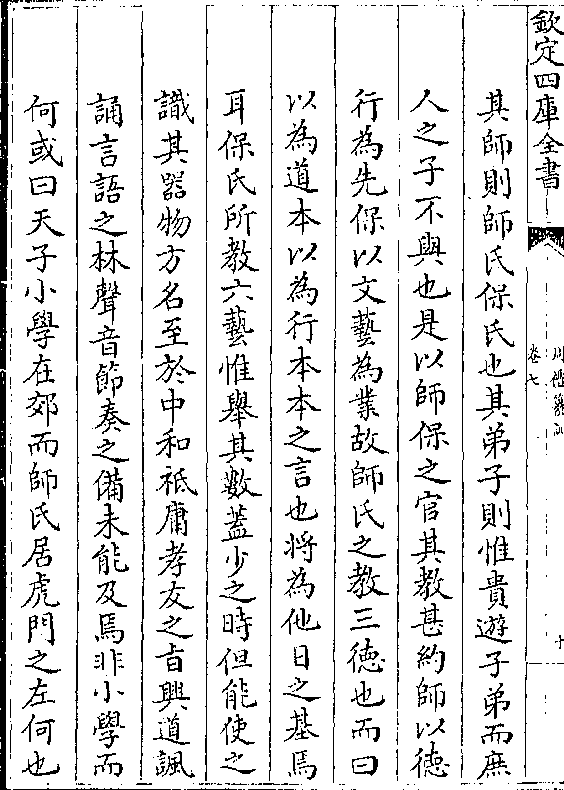 欽定四庫全書
卷七
其師則師氏保氏也其弟子則惟貴遊子弟而庶
人之子不與也是以師保之官其教甚約師以德
行為先保以文藝為業故師氏之教三徳也而曰
以為道本以為行本本之言也将為他日之基焉
耳保氏所教六藝惟舉其數葢少之時但能使之
識其器物方名至於中和祗庸孝友之㫖興道諷
誦言語之林聲音節奏之備未能及焉非小學而
何或曰天子小學在郊而師氏居虎門之左何也